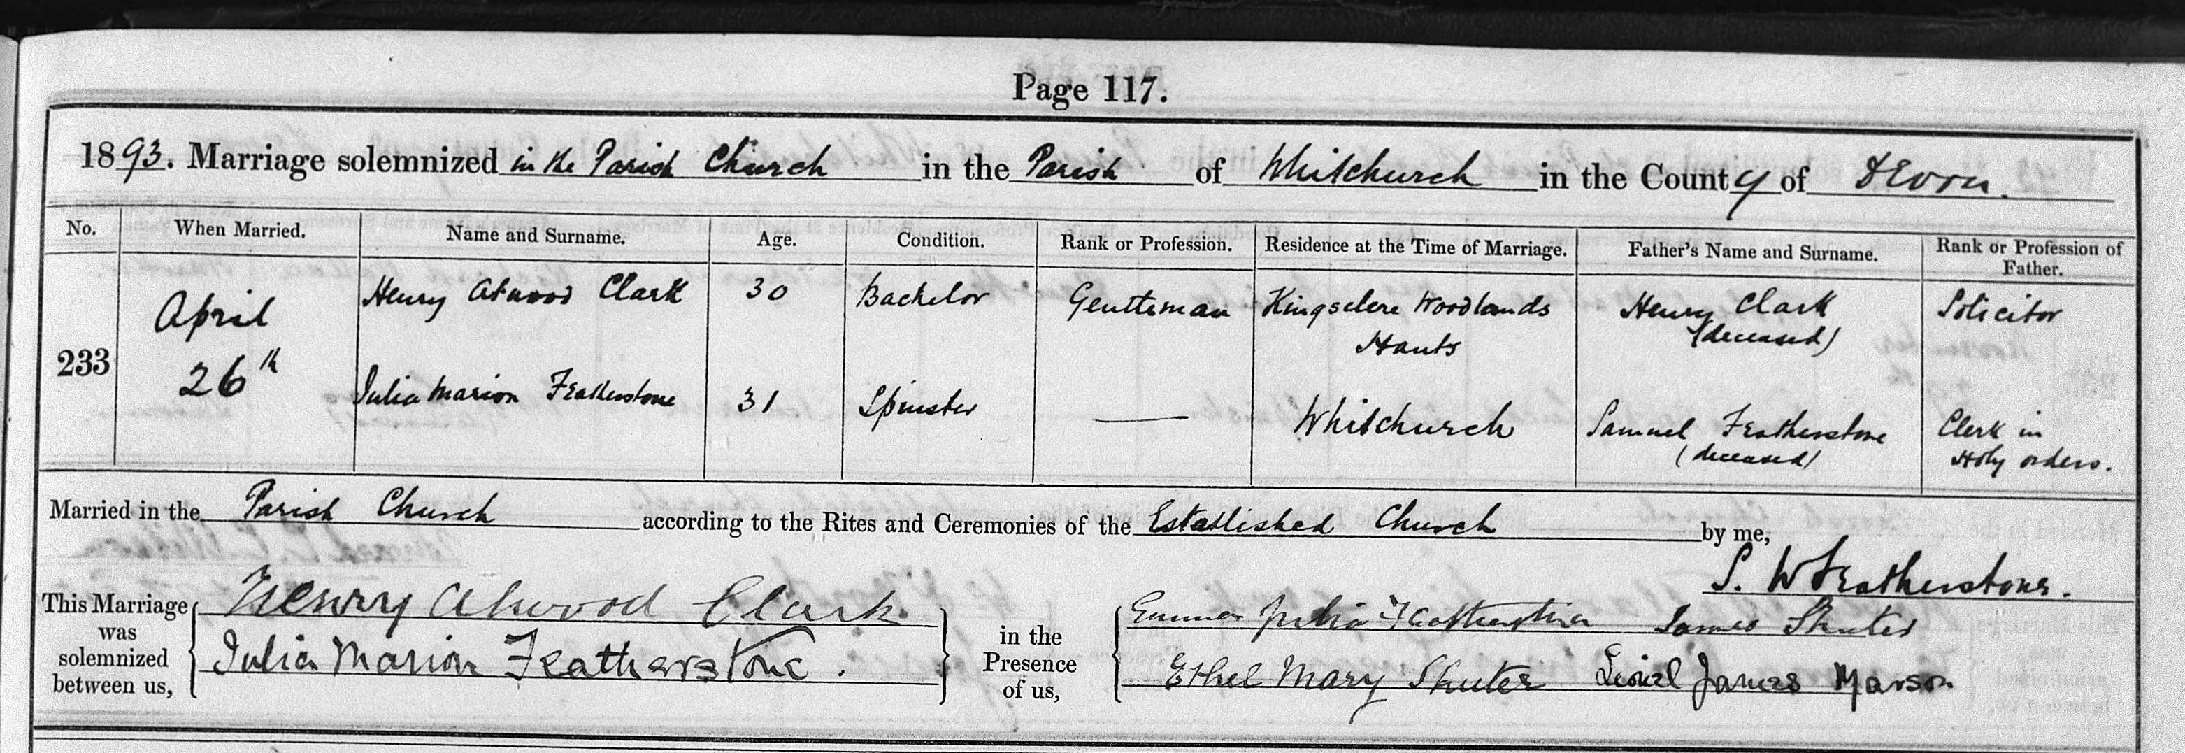 Page 117.
1893. Marriage solemnized in the Parish Church in the Parish of Whitchurch in the County of Devon.
No. When Married. Name and Surname. Age. Condition. Rank or Profession. Residence at the Time of Marriage. Father's Name and Surname. Rank or Profession of Father.
233 April 26th
Henry Atwood Clark 30 Bachelor Gentleman Kingsclere Woodlands Hants Henry Clark (deceased) Solicitor
Julia Marion Featherstone 31 Spinster — Whitchurch Samuel Featherstone (deceased) Clerk in Holy orders.
Married in the Parish Church according to the Rites and Ceremonies of the Established Church by me,
S. W Featherstone.
This Marriage was solemnized between us,
Henry Atwood Clark.
Julia Marion Featherstone.
in the Presence of us,
Emma Julia Featherstone James Shuter
Ethel Mary Shuter Lionel James Marson